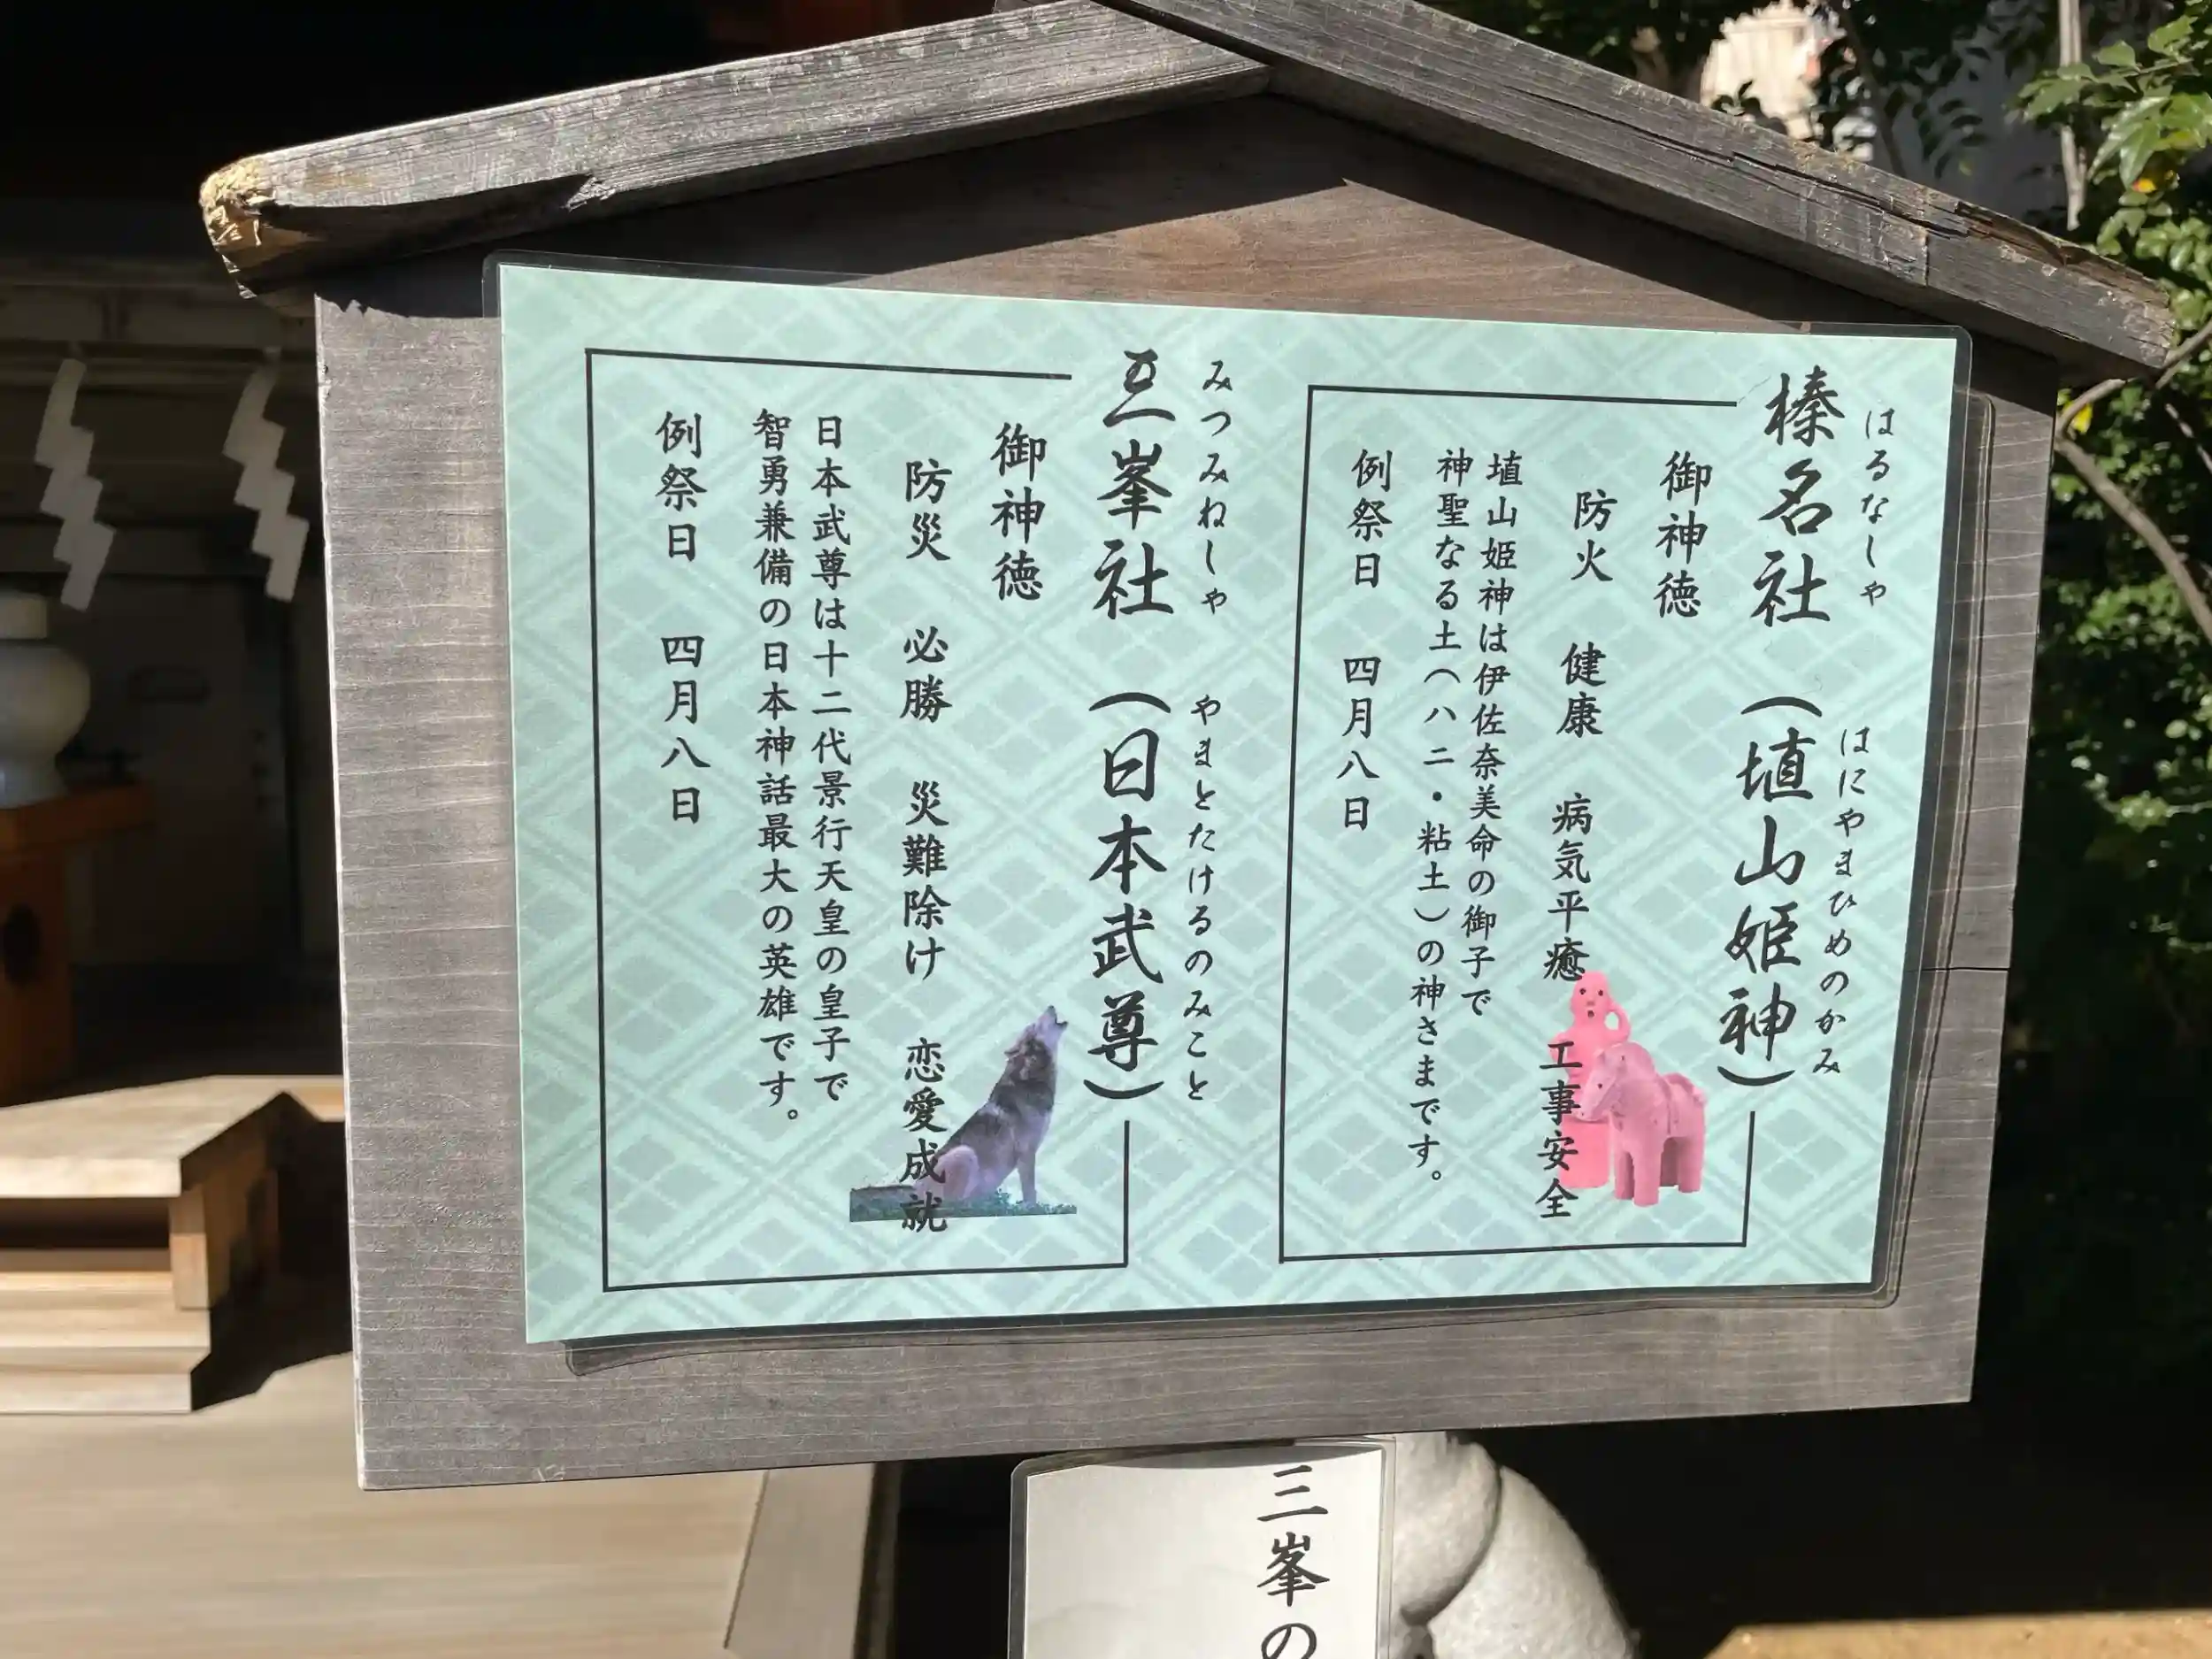 はるなしゃ
榛名社
はにやまひめのかみ
(埴山姫神)
御神徳
防火 健康 病気平癒 工事安全
埴山姫神は伊佐奈美命の御子で
神聖なる土(ハニ・粘土)の神さまです。
例祭日 四月八日
みつみねしゃ
三峯社
やまとたけるのみこと
(日本武尊)
御神徳
防災 必勝 災難除け 恋愛成就
日本武尊は十二代景行天皇の皇子で
智勇兼備の日本神話最大の英雄です。
例祭日 四月八日
三峯の